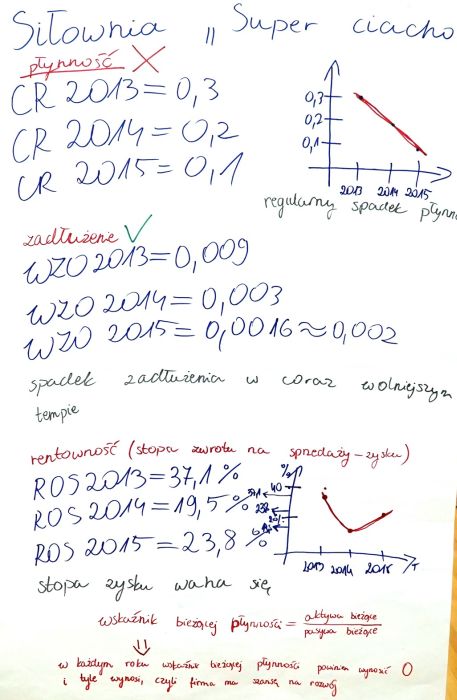 Siłownia „ Super ciacho
płynność
CR 2013 = 0,3
CR 2014 = 0,2
CR 2015 = 0,1
0,3
0,2
0,1
2013 2014 2015
regularny spadek płynn
zadłużenie
WZO 2013 = 0,009
WZO 2014 = 0,003
WZO 2015 = 0,0016 ≈ 0,002
spadek zadłużenia w coraz wolniejszym
tempie
rentowność (stopa zwrotu na sprzedaży - zysku)
ROS 2013 = 37,1 %
ROS 2014 = 19,5 %
ROS 2015 = 23,8 %
%
40
37,1
23,8
20
2013 2014 2015 T
stopa zysku waha się
wskaźnik bieżącej płynności = aktywa bieżące
pasywa bieżące
w każdym roku wskaźnik bieżącej płynności powinien wynosić 0
i tyle wynosi, czyli firma ma szansę na rozwój